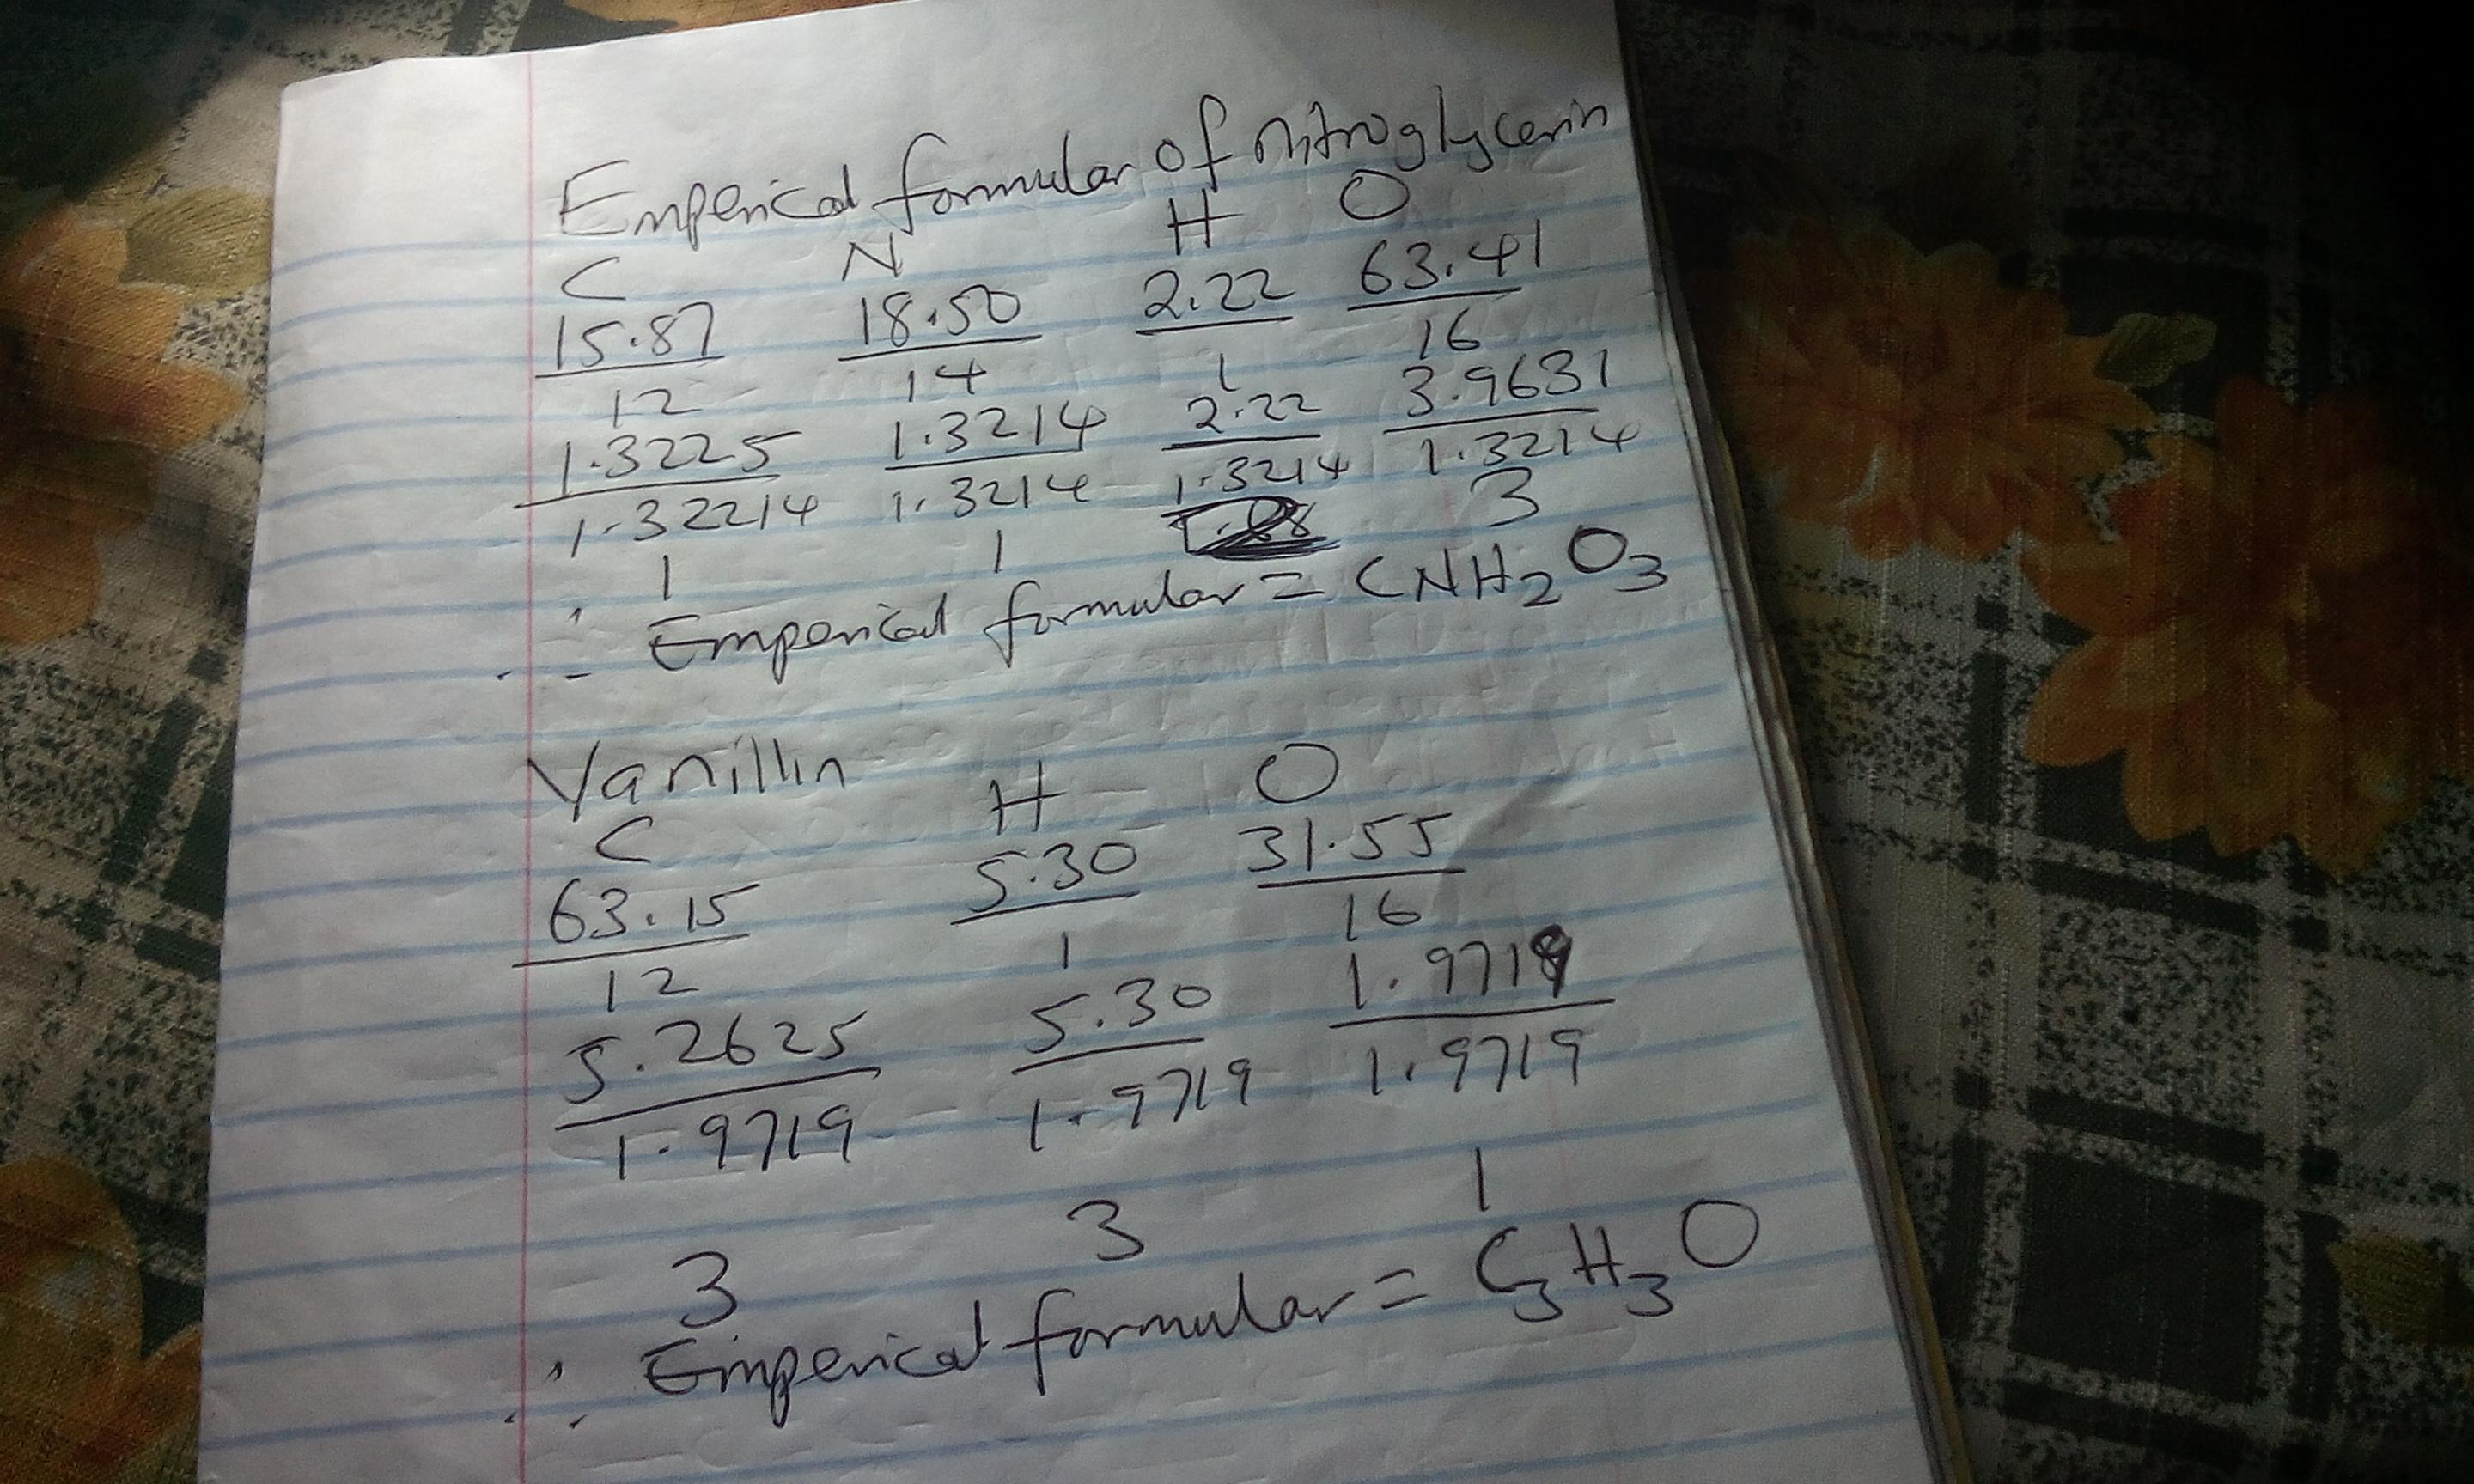 Emperical formular of nitroglycerin
C N H O
15.87 18.50 2.22 63.41
12 14 1 16
1.3225 1.3214 2.22 3.9631
1.32214 1.3214 1.3214 1.3214
1 1 3
∴ Emperical formular = CNH2O3
Vanillin
C H O
63.15 5.30 31.55
12 1 16
5.2625 5.30 1.9719
1.9719 1.9719 1.9719
3 3 1
∴ Emperical formular = C3H3O